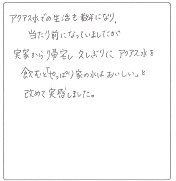 アクアス水での生活も数年になり、
当たり前になっていましたが
実家から帰宅し久しぶりにアクアス水を
飲むと「やっぱり家の水はおいしい」と
改めて実感しました。